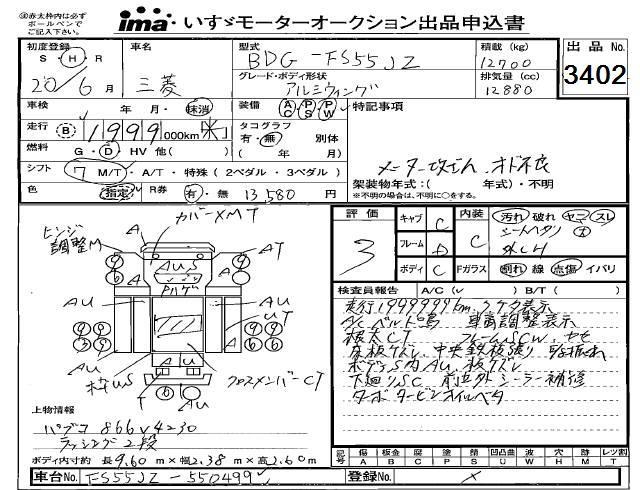 ※赤太枠内は必ず
ボールペンで
ご記入下さい。
ima いすゞモーターオークション出品申込書
初度登録
S・H・R
20/6月
車名
三菱
型式
BDG-FS55JZ
グレード・ボディ形状
アルミウィング
積載(kg)
12700
排気量(cc)
12880
出品No.
3402
車検
年 月・抹消
装備 AC PS PW
特記事項
走行 B 1999,000km 米
タコグラフ
有・無 別体
(年 月)
燃料 G・D・HV 他( )
シフト 7 M/T・A/T・特殊(2ペダル・3ペダル)
メーター改ざん、オド不良
架装物年式:( 年式)・不明
※不明の場合は、不明に○をする。
色 指定 R券 有・無 13,580円
評価
3
キャブ C
フレーム D
ボディ C
内装 C
汚れ 破れ ヤニ スレ
シートヘタリ 大
Fガラス 割れ 線 点傷 イバリ
検査員報告 A/C(v ) B/T( )
走行1999999km、
A/Cベルト 車両調整表示
根太CT フレームSCW、
床板ワレ、中央鉄板張り
ボデーS内AU、板ワレ
下廻りSC 前立外シーラー補修
ターボタービンオイル
ヒンジ
調整M
カバーXMT
A
AT
A
AUS
AU
AU
UT
A
AU
クロスメンバーCT
T
AU
上物情報
パブコ 866V4230
ラッシング2段
ボディ内寸 約 長9.60m×幅2.38m×高2.60m
記号
傷 A
板金 B
腐 C
塗 P
油 S
凹凸曲 U
波 W
穴 H
跡 M
レツ割 T
車台No. FS55JZ-550499
登録No.